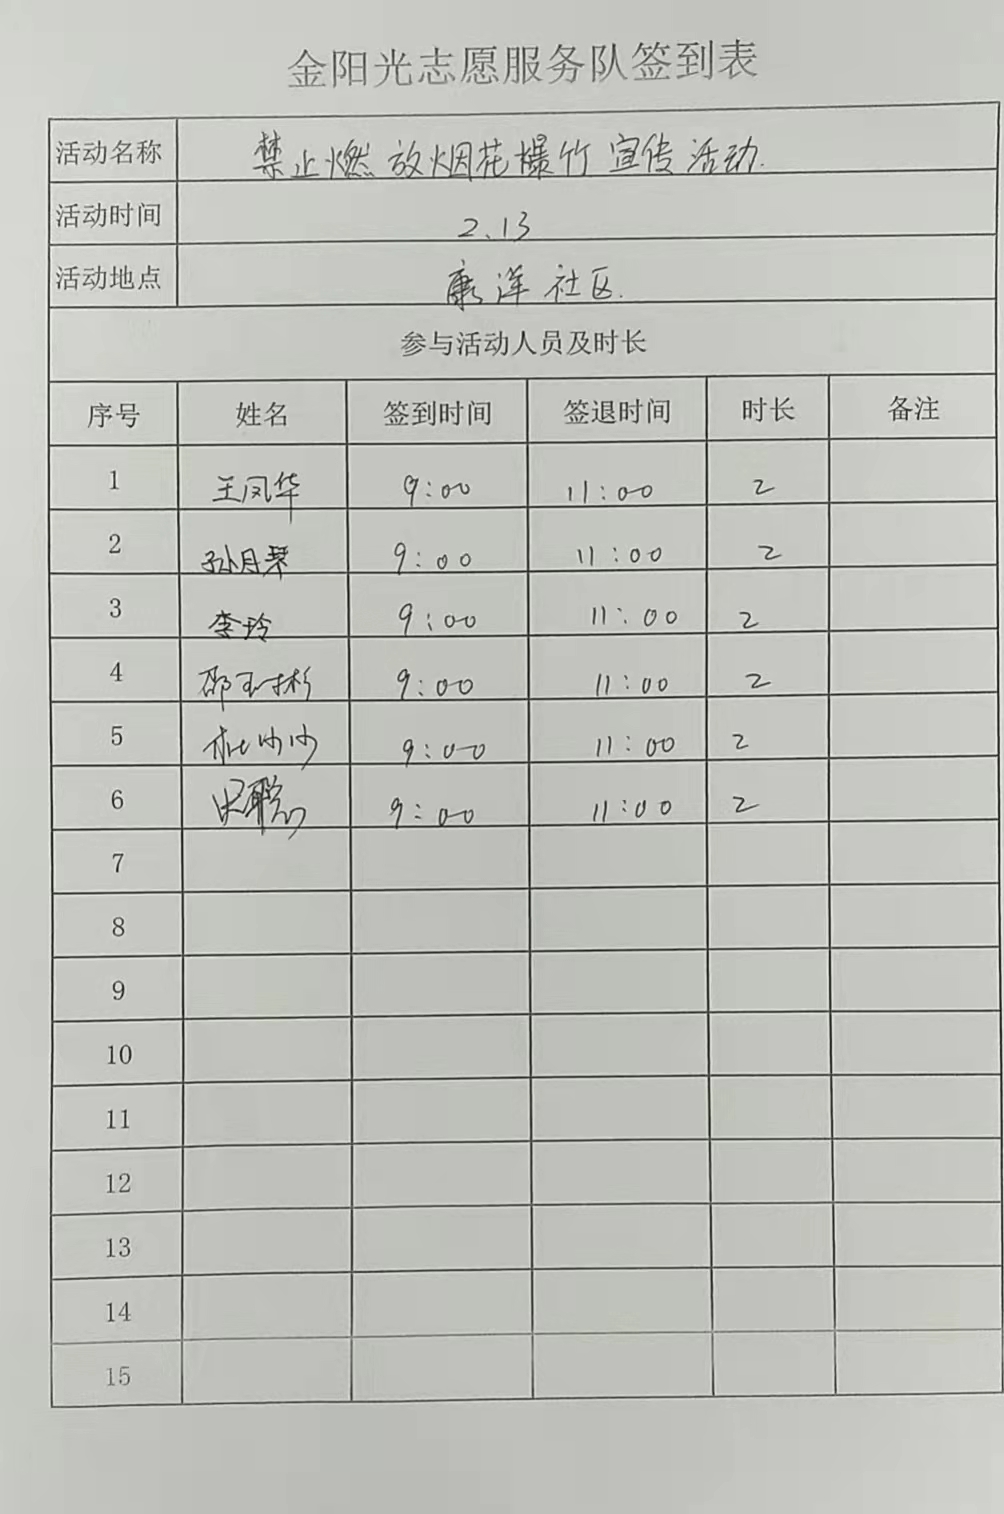 金阳光志愿服务队签到表
活动名称 禁止燃放烟花爆竹宣传活动.
活动时间 2.13
活动地点 康洋社区.
参与活动人员及时长
序号 姓名 签到时间 签退时间 时长 备注
1 王凤华 9:00 11:00 2
2 孙月琴 9:00 11:00 2
3 李玲 9:00 11:00 2
4 邵玉彬 9:00 11:00 2
5 杜沙沙 9:00 11:00 2
6 史聪 9:00 11:00 2
7
8
9
10
11
12
13
14
15